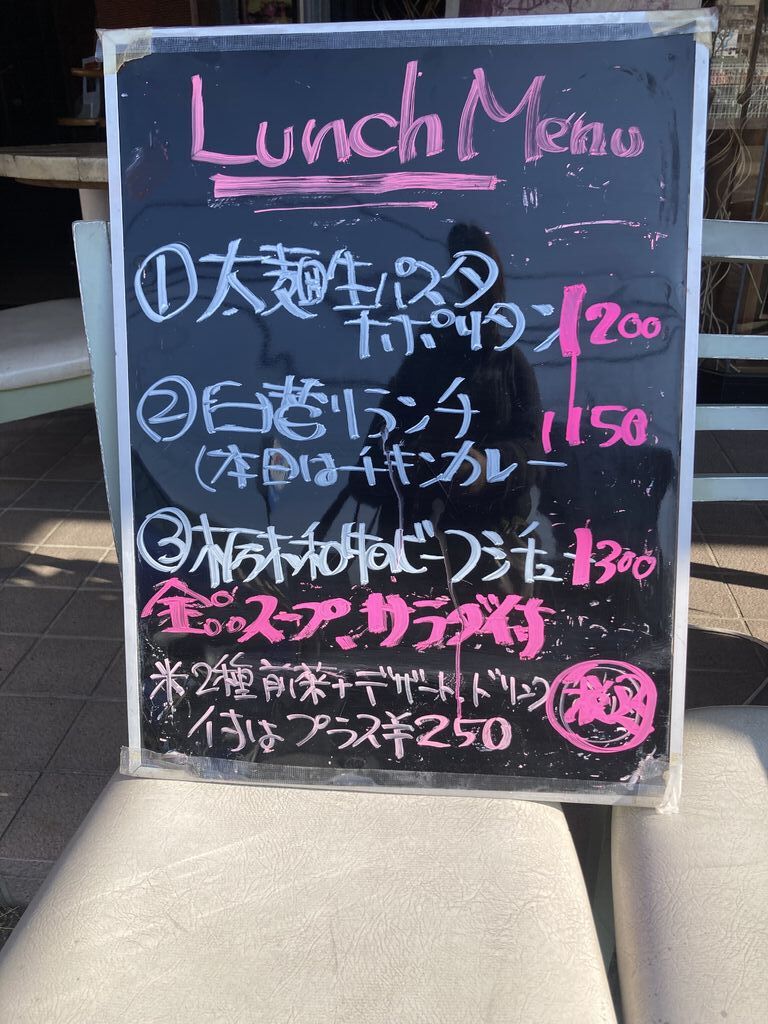 Lunch Menu
①太麺生パスタ
ナポリタン 1200
②日替りランチ 1150
(本日はチキンカレー
③栃木和牛ビーフシチュー 1300
全品スープ、サラダ付
※2種前菜+デザート、ドリンク
付はプラス¥250